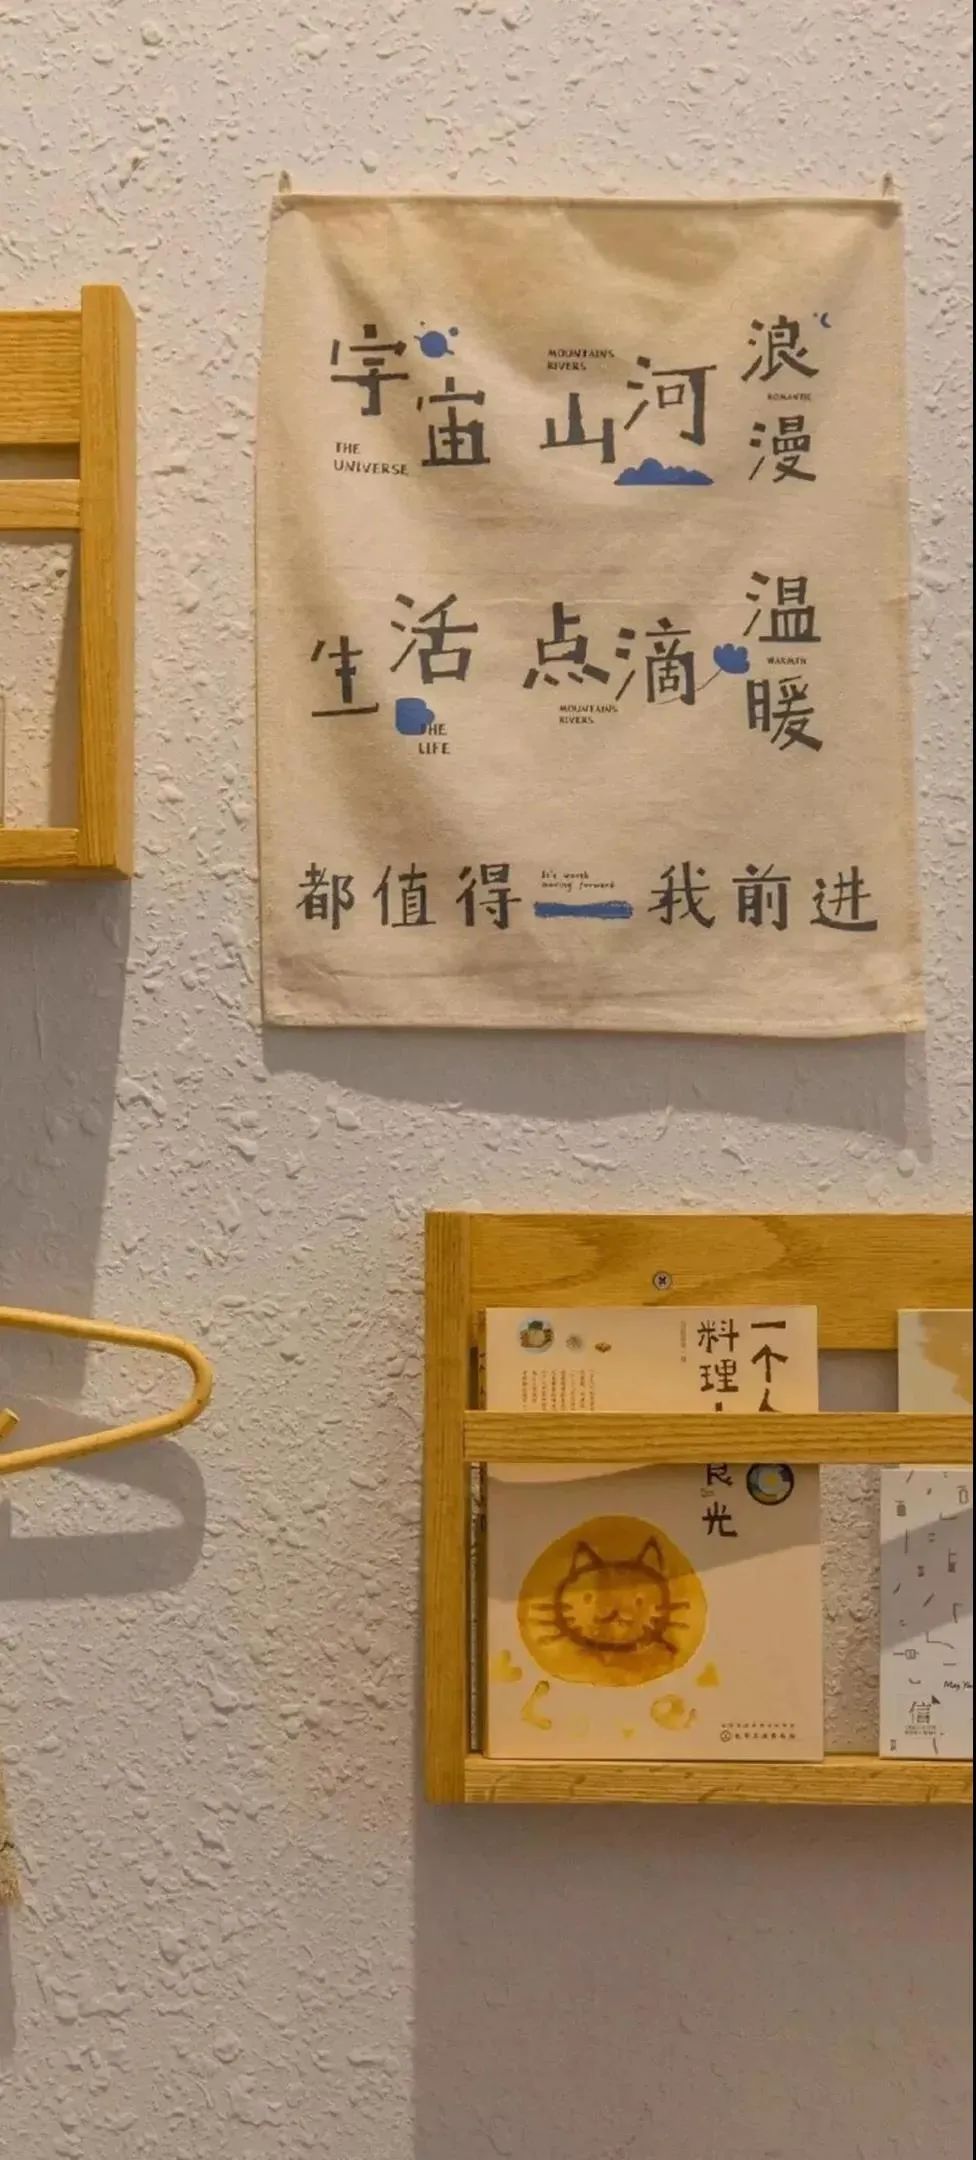 宇宙
THE
UNIVERSE
MOUNTAINS
RIVERS
山河
浪漫
ROMANTIC
生活
THE
LIFE
点滴
MOUNTAINS
RIVERS
温暖
WARMTH
都值得
It's worth
moving forward
我前进
一个人
料理 食光
信